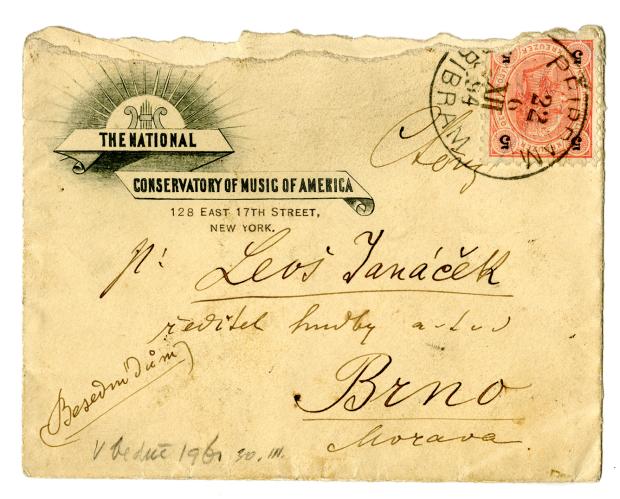 THE NATIONAL
CONSERVATORY OF MUSIC OF AMERICA
128 EAST 17TH STREET,
NEW YORK.
PŘIBRAM
22 6
XII
94
PŘIBRAM
KREUZER
5 5
5 5
p:
Leoš Janáček
ředitel hudby a t d
Brno
Morava.
Besední dům
30. III.